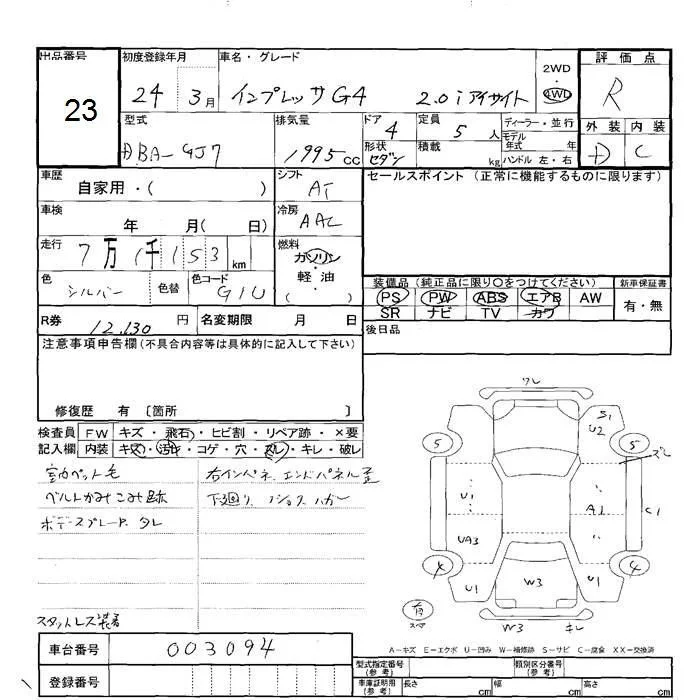 出品番号 初度登録年月 車名・グレード 2WD・4WD 評価点
23
24 3月 インプレッサG4 2.0i アイサイト R
型式 排気量 ドア 4 定員 5人 ディーラー・並行 外装 内装
DBA-GJ7 1995cc 形状 セダン 積載 kg モデル年式 年 ハンドル 左・右 D C
車歴 自家用・( ) シフト AT セールスポイント(正常に機能するものに限ります)
車検 年 月( 日) 冷房 AAC
走行 7万1千153km 燃料 ガソリン 軽・油 ( )
色 シルバー 色替 色コード G1U 装備品(純正品に限り○をつけてください) 新車保証書
PS PW ABS エアB AW 有・無
SR ナビ TV カワ
R券 12,130円 名変期限 月 日 後日品
注意事項申告欄(不具合内容等は具体的に記入して下さい)
修復歴 有 [箇所 ]
検査員 FW キズ・飛石・ヒビ割・リペア跡・×要
記入欄 内装 キズ・汚れ・コゲ・穴・スレ・キレ・破レ
室内ペット毛 右インパネ、エンドパネル歪
ベルトかみこみ跡 下廻り
ボデースプレード タレ
スタットレス装着
ワレ
S1
U2
5 5
ズレ
U1 A1 C1
UA3
4 4
U1 W3 U1
有
スペア
W3 キレ
A-キズ E-エクボ U-凹み W-補修跡 S-サビ C-腐食 XX-交換済
車台番号 003094
登録番号
型式指定番号(参考) 類別区分番号(参考)
車庫証明用(参考) 長さ cm 幅 cm 高さ cm